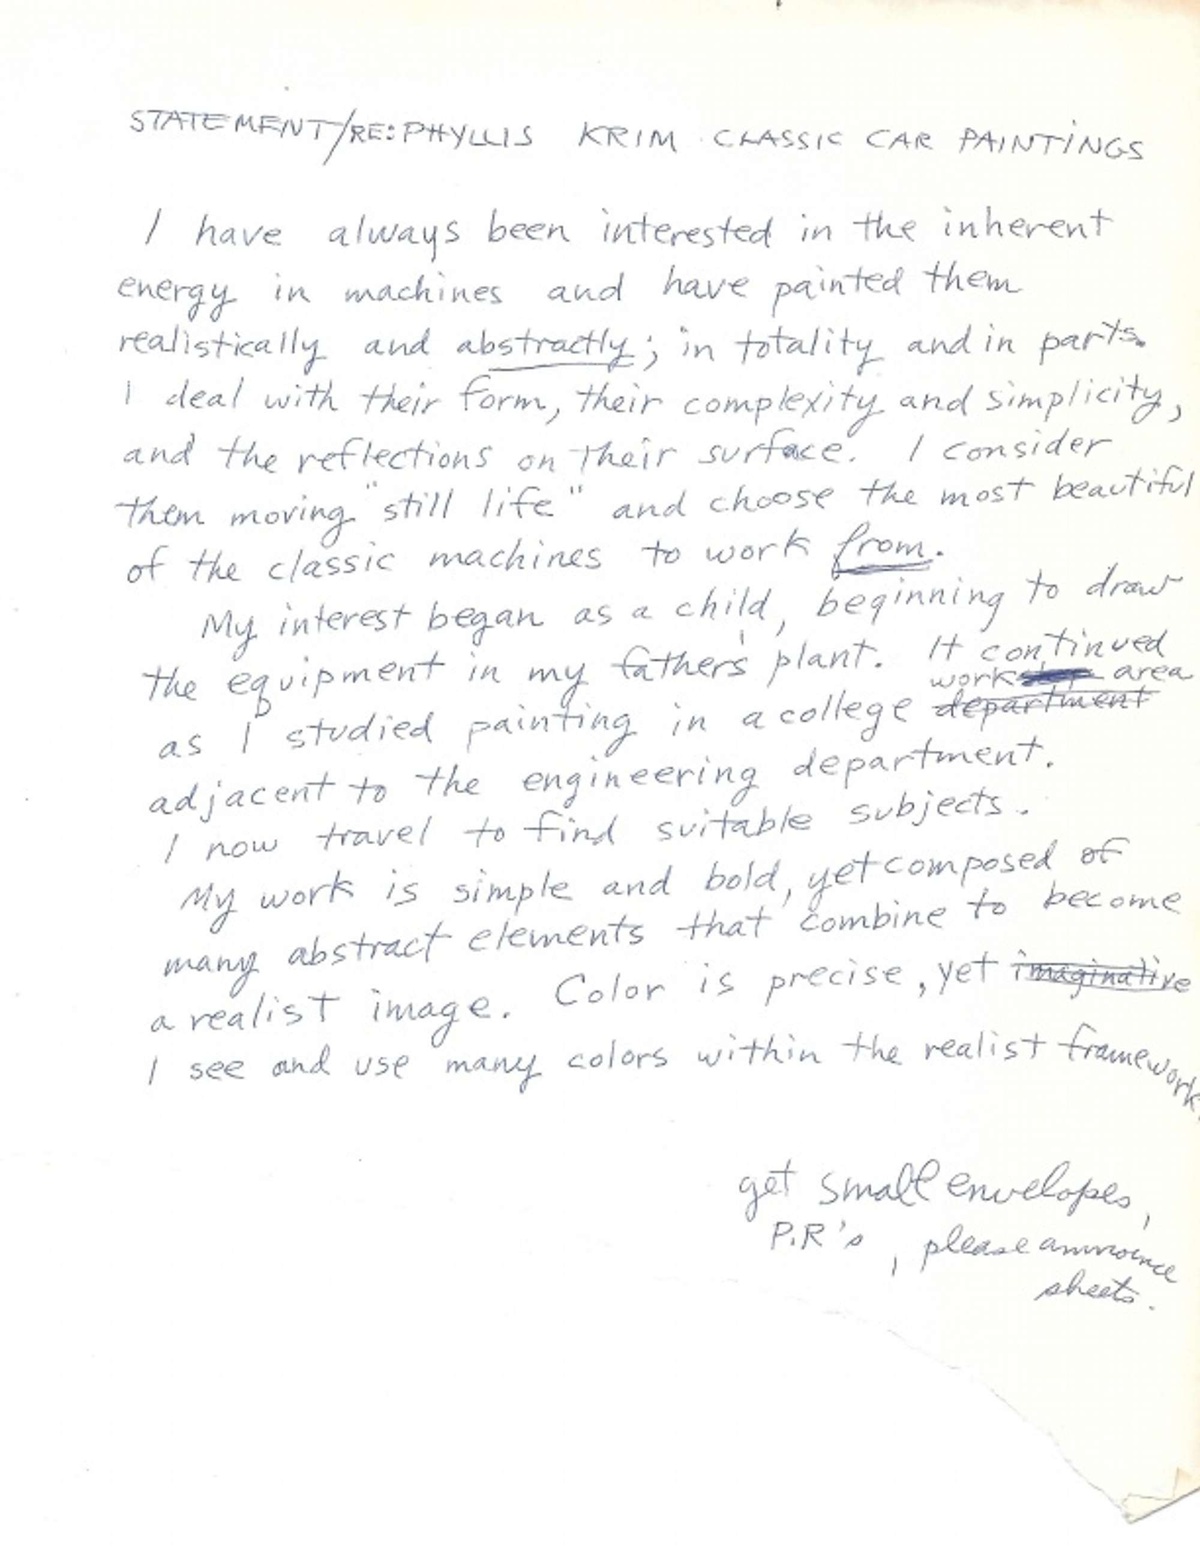 STATEMENT/RE: PHYLLIS KRIM CLASSIC CAR PAINTINGS
I have always been interested in the inherent
energy in machines and have painted them
realistically and abstractly; in totality and in parts.
I deal with their form, their complexity and simplicity,
and the reflections on their surface. I consider
them moving "still life" and choose the most beautiful
of the classic machines to work from.
My interest began as a child, beginning to draw
the equipment in my father's plant. It continued
work area
as I studied painting in a college department
adjacent to the engineering department.
I now travel to find suitable subjects.
My work is simple and bold, yet composed of
many abstract elements that combine to become
a realist image. Color is precise, yet imaginative
I see and use many colors within the realist framework.
get small envelopes,
P.R's, please announce
sheets.